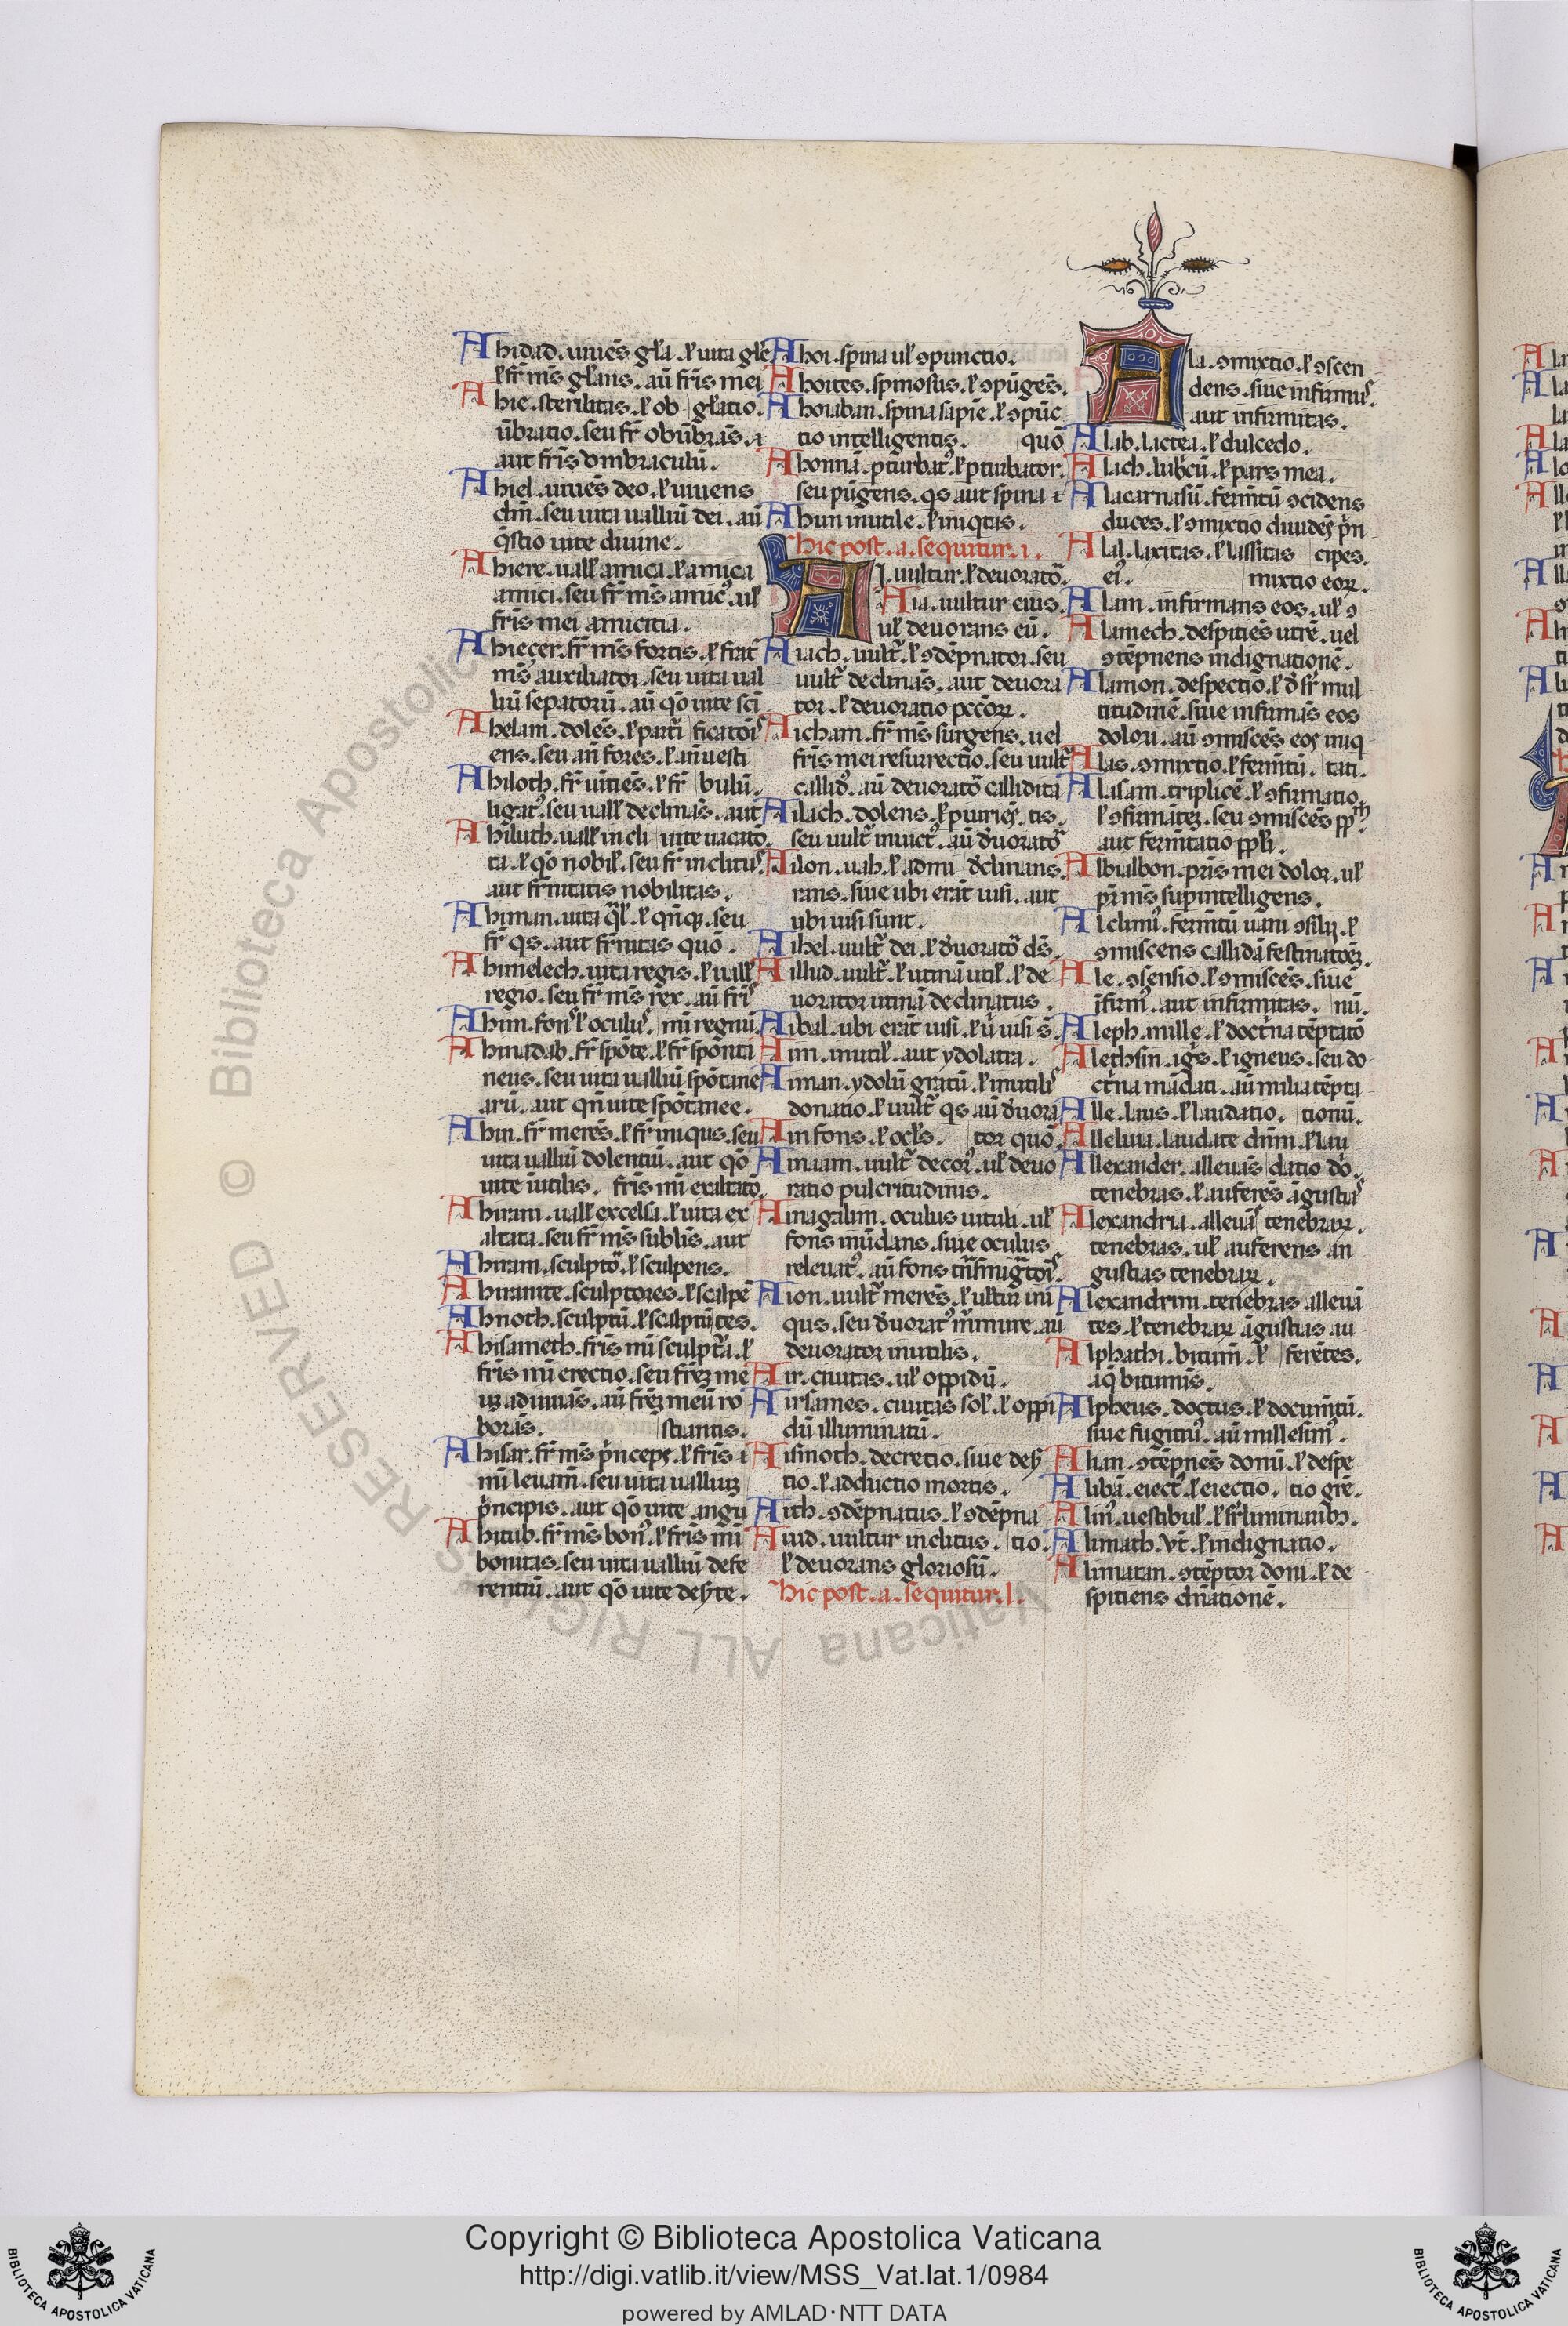 Ahidad. uiuēs gl̄a. ł uita gl̄e
ł fr̄ m̄s gl̄ans. aū fr̄is mei
Ahie. sterilitas. ł ob | gl̄atio.
ūbratio. seu fr̄ obūbrās.
aut fr̄is ombraculū.
Ahiel. uiuēs deo. ł uiuens
dm̄. seu uita ualliū dei. aū
q̄stio uite diuine.
Ahiere. uall̄ amica. ł amica
amici. seu fr̄ m̄s amic᷒. ul̄
fr̄is mei amicitia.
Ahiecer. fr̄ m̄s fortis. ł frat̄
m̄s auxiliator. seu uita ual
liū sepatorū. aū qō uite sci
Ahelam. dolēs. ł part̄i | ficatōis
ens. seu an̄ fores. ł an̄ uesti
Ahiloth. fr̄ | bulū.
ligat᷒. seu uall̄ declinās. aut
Ahiluth. uall̄ in cli | uite uacatō.
ta. ł qō nobil̄. seu fr̄ inclitus
aut fr̄nitatis nobilitas.
Ahiman. uita q̄l̄. ł seu
fr̄ qs. aut fr̄nitas quō.
Ahimelech. uita regis. ł uall̄
regio. seu fr̄ m̄s rex. aū fr̄is
Ahim. fons ł oculus. | mī regnū.
Ahinadab. fr̄ spōte. ł fr̄ spōnta
neus. seu uita ualliū spōtane
arū. aut qn̄ uite spōtanee.
Ahin. fr̄ merēs. ł fr̄ iniqus. seu
uita ualliū dolentiū. aut qō
uite iūtilis. | fr̄is mī exaltatō.
Ahiram. uall̄ excelsa. ł uita ex
altata. seu fr̄ m̄s sublīs. aut
Ahiram. sculptō. ł sculpens.
Ahiramite. sculptores. ł scalpē
Ahnoth. sculptū. ł sculptū | tes.
Ahisameth. fr̄is mī sculpt̄a. ł
fr̄is mī erectio. seu fr̄eꝫ me
uꝫ adiuuās. aū fr̄eꝫ meū ro
borās. | stiantis.
Ahisar. fr̄ m̄s p̄nceps. ł fr̄is
mī leuam̄. seu uita ualliuꝫ
p̄ncipis. aut qō uite angu
Ahitub. fr̄ m̄s bon᷒. ł fr̄is mī
bonitas. seu uita ualliū defe
rentiū. aut qō uite dehite.
Ahoi. spina ul̄ ꝯpunctio.
Ahoites. spinosus. ł ꝯpūgēs.
Ahoraban. spina sapiē. ł ꝯpūc
tio intelligentis. | quō
Ahonnā. pturbat᷒. ł pturbator.
seu pūgens. qs aut spina
Ahun inutile. ł iniq̄tas.
hic post. a. sequitur. i.
AI. uultur. ł deuoratō.
Aia. uultur eius.
ul̄ deuorans eū.
Aiach. uult̄. ł ꝯdēpnator. seu
uult̄ declinās. aut deuora
tor. ł deuoratio pccōꝝ.
Aicham. fr̄ m̄s surgens. uel
fr̄is mei resurrectio. seu uult̄
callid᷒. aū deuoratō callidita
Ailach. dolens. ł | tis.
seu uult̄ inuict᷒. aū d̄uoratō
Ailon. uah. ł admi | d̄clinans.
rans. siue ubi erāt uisi. aut
ubi uisi sunt.
Aihel. uult̄ dei. ł d̄uoratō dī.
Aillud. uult̄. ł utinā util̄. ł de
uorator utinā declinatus.
Aibal. ubi erāt uisi. ł ubi uisi s̄.
Aim. inutil̄. aut ydolatia.
Aiman. ydolū gratū. ł inutilis
donatio. ł uult̄ qs aū d̄uora
Ain fons. ł ocl̄s. | tor quō.
Ainam. uult̄ decor᷒. ul̄ deuo
ratio pulcritudinis.
Ainagalim. oculus uituli. ul̄
fons mūdans. siue oculus
releuat᷒. aū fons
Aion. uult̄ merēs. ł ultur ini
qus. seu d̄uorat᷒ m̄mure. aū
deuorator inutilis.
Air. ciuitas. ul̄ oppidū.
Airsames. ciuitas sol̄. ł oppi
dū illuminatū.
Aisimoth. decretio. siue deh
tio. ł adductio mortis.
Aith. ꝯdēpnatus. ł ꝯdēpna
Aiud. uultur inclitus. | tio.
ł deuorans gloriosū.
hic post. a. sequitur. l.
Ala. ꝯmixtio. ł ꝯscen
dens. siue infirmus.
aut infirmitas.
Alab. lactea. ł dulcedo.
Alach. lub̄cū. ł pars mea.
Alacarnasū. ferm̄tū ꝯcidens
duces. ł ꝯmixtio diuidēs p̄n
Alal. laxitas. ł lassitas | cipes.
ei᷒. | mixtio eoꝝ.
Alam. infirmans eos. ul̄ ꝯ
Alamech. despitiēs utrē. uel
ꝯtēpnens indignationē.
Alamon. despectio. ł d̄ sr̄ mul
titudinē. siue infirmās eos
dolori. aū ꝯmiscēs eos iniq
Alas. ꝯmixtio. ł ferm̄tū. | tati.
Alasam. triplicē. ł ꝯfirmatio
ł ꝯfirmāteꝫ. seu ꝯmiscēs
aut fermn̄tatio ppl̄i.
Albialbon. pr̄is mei dolor. ul̄
pr̄ m̄s supintelligens.
Alcimus. ferm̄tū uani ꝯsilij. ł
ꝯmiscens callidā festinatōeꝫ.
Ale. ꝯscensio. ł ꝯmiscēs. siue
īfirm᷒. aut infirmitas. | nū.
Aleph. mille. ł doct̄na tēptatō
Alethsin. igs. ł igneus. seu do
ct̄na mādati. aū milia tēpta
Alle. laus. ł laudatio. | tionū.
Alleluia. laudate dn̄m. ł lau
Allexander. alleuās | datio dō.
tenebras. ł auferēs āgustias
Alexandria. alleuās tenebraꝝ.
tenebras. ul̄ auferens an
gustias tenebraꝝ.
Alexandrini. tenebras alleuā
tes. ł tenebraꝝ āgustias au
Alphathi. bitum̄. ł | ferētes.
aq̄ bituminis.
Alpheus. doctus. ł docum̄tū.
siue fugitiu᷒. aū millesim᷒.
Alian. ꝯtēpnēs domū. ł despe
Alibā. eiect᷒. ł eiectio. | tio grē.
Alim᷒. uestibul̄. ł sr̄ liminaribꝫ.
Alimath. Vt̄. ł indignatio.
Alimatan. ꝯtēptor doni. ł de
spitiens dn̄ationē.
Copyright © Biblioteca Apostolica Vaticana
http://digi.vatlib.it/view/MSS_Vat.lat.1/0984
powered by AMLAD·NTT DATA
BIBLIOTECA APOSTOLICA VATICANA
BIBLIOTECA APOSTOLICA VATICANA
© Biblioteca Apostolica Vaticana ALL RIGHTS RESERVED